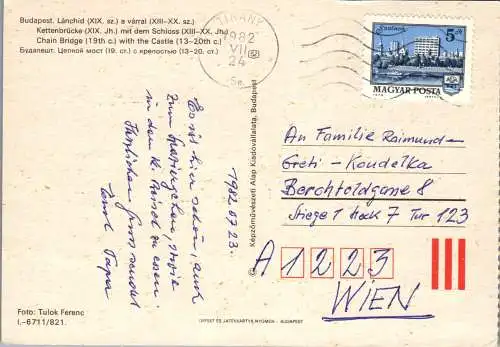 Budapest. Lánchíd (XIX. sz.) a várral (XIII–XX. sz.)
Kettenbrücke (XIX. Jh.) mit dem Schloss (XIII–XX. Jh.)
Chain Bridge (19th c.) with the Castle (13–20th c.)
Будапешт. Цепной мост (19. ст.) с крепостью (13–20. ст.)
TIHANY
1982
VII
24
Szolnok
5 Ft
MAGYAR POSTA
Es ist hier schön, auch
zum Spazierengehen, sowie
in dem zu essen
Herzlichen Gruss sendet
Papa
1982 07 23.
Képzőművészeti Alap Kiadóvállalata, Budapest
An Familie Raimund-
Greti - Koudelka
Berchtoldgasse 8
Stiege 1 Stock 7 Tür 123
A 1223
WIEN
Foto: Tulok Ferenc
I.–6711/821.
OFFSET ÉS JÁTÉKKÁRTYA NYOMDA - BUDAPEST